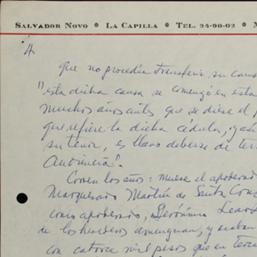 SALVADOR NOVO • LA CAPILLA • TEL. 24-98-02 •
4
que no procedía transferir su causa
"esta dicha causa se comenzó en esta
muchos años antes que se diese el
que refiere la dicha cédula, y
su tenor, es llano deberse de
Audiencia".
Corren los años: muere el apoderado
Marquesado Martín de Santa Cruz
como apoderado, Jerónimo
de los herederos
con catorce mil pesos que en